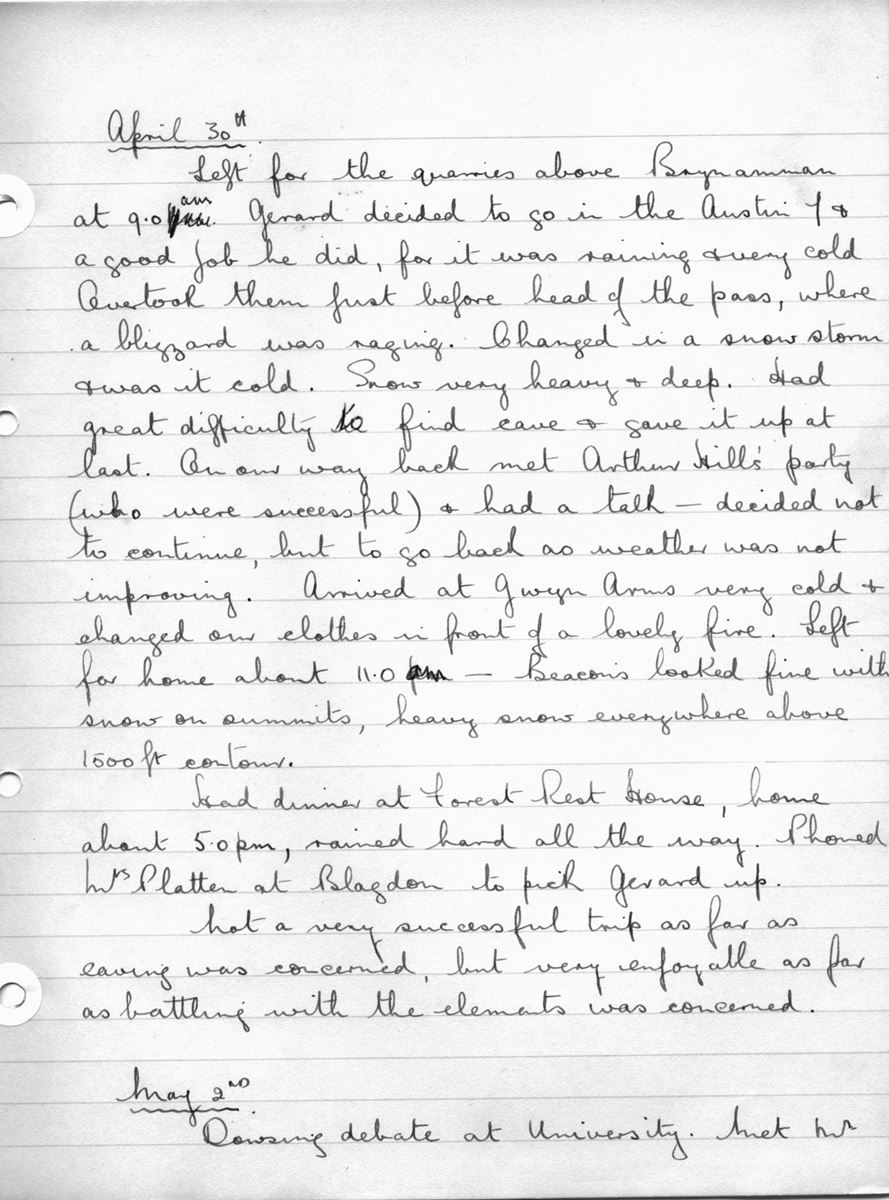 April 30th.
Left for the quarries above Brynamman
at 9.0 am. Gerard decided to go in the Austin 7 &
a good job he did, for it was raining & very cold
Overtook them just before head of the pass, where
a blizzard was raging. Changed in a snow storm
& was it cold. Snow very heavy & deep. Had
great difficulty to find cave & gave it up at
last. On our way back met Arthur Hill's party
(who were successful) & had a talk — decided not
to continue, but to go back as weather was not
improving. Arrived at Gwyn Arms very cold &
changed our clothes in front of a lovely fire. Left
for home about 11.0 — Beacons looked fine with
snow on summits, heavy snow everywhere above
1500 ft contour.
Had dinner at Forest Rest House, home
about 5.0 pm, rained hard all the way. Phoned
Mrs Platten at Blagdon to pick Gerard up.
Not a very successful trip as far as
caving was concerned, but very enjoyable as far
as battling with the elements was concerned.
May 2nd.
Dowsing debate at University. Met Mr